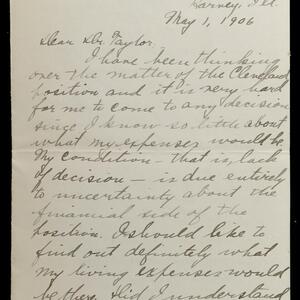 Carney, Del.
May 1, 1906
Dear Dr. Taylor.
I have been thinking
over the matter of the Cleveland
position and it is very hard
for me to come to any decision
since I know so little about
what my expenses would be.
My condition - that is, lack
of decision - is due entirely
to uncertainty about the
financial side of the
position. I should like to
find out definitely what
my living expenses would
be there. Did I understand